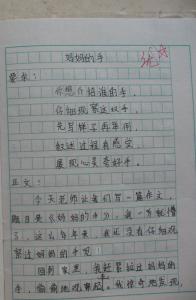 妈妈的手
要求：
你想介绍谁的手，
仔细观察这双手，
先写样子再举例，
叙述过程有感受，
展现心灵夸好手。
正文：
今天老师让我们写一篇作文，
题目是《妈妈的手》，我一下就懵
了，这么多年来，我还没有仔细观
察过妈妈的手呢！
回到家里，我赶紧拉过妈妈的
手，偷偷地观察起，我惊奇地发现，